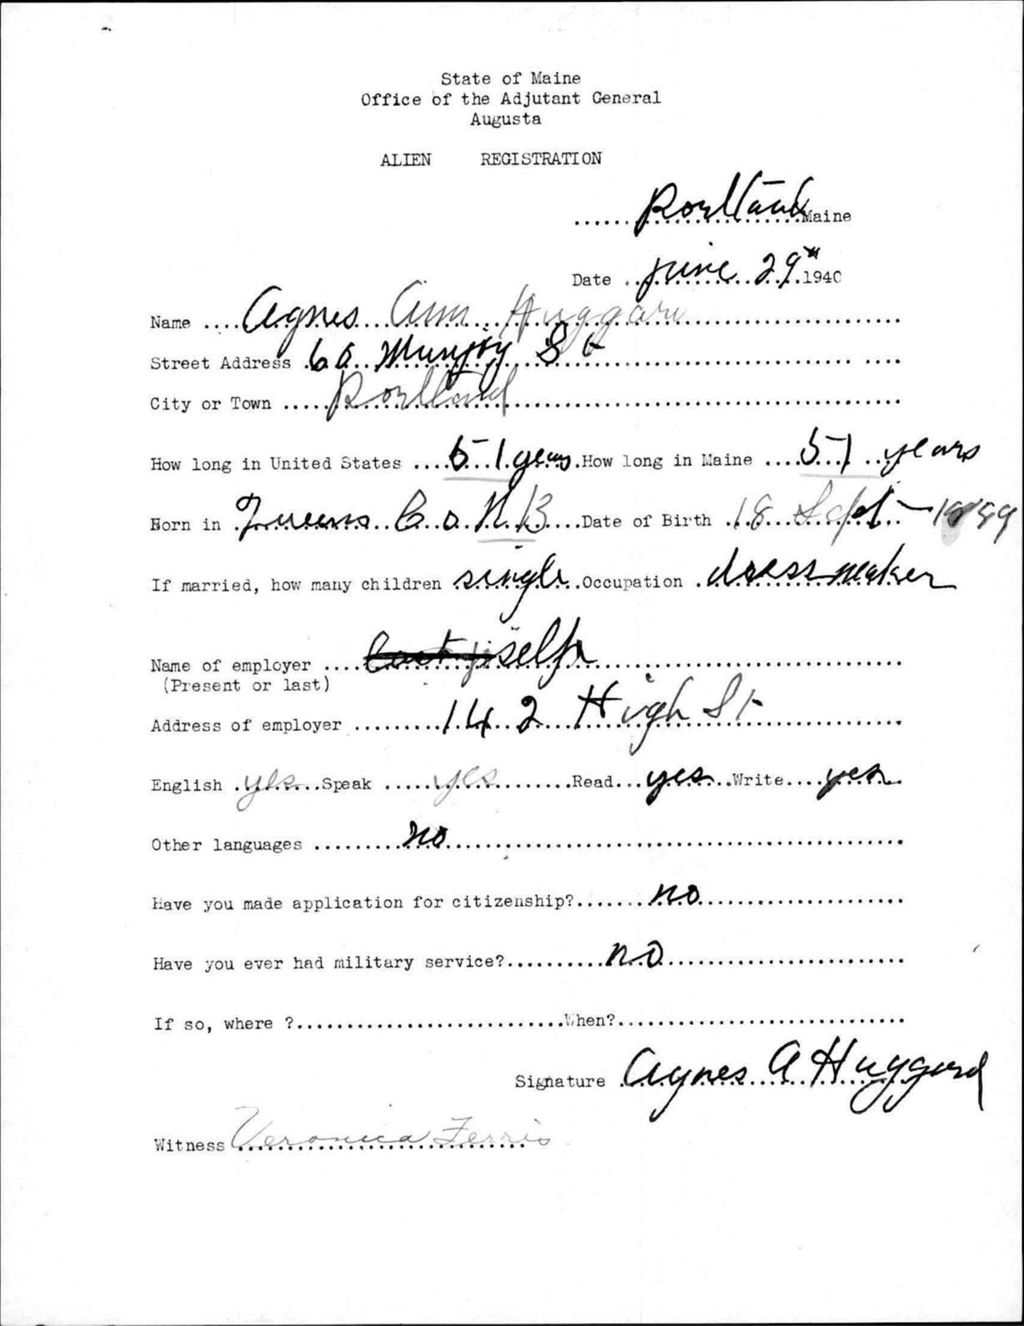 State of Maine
Office of the Adjutant General
Augusta
ALIEN REGISTRATION
...... Portland Maine
Date .. June 29th 1940
Name .... Agnes Ann Huggard
Street Address . 60 Munjoy St
City or Town ..... Portland
How long in United States .... 51 years. How long in Maine .... 51 years
Born in . Queens Co N.B .... Date of Birth . 18 Sept -
If married, how many children . single .. Occupation . dressmaker
Name of employer .... self
(Present or last)
Address of employer ......... 142 High St
English . yes .... Speak ..... yes ........ Read... yes ... Write.... yes.
Other languages ......... no
Have you made application for citizenship?....... no
Have you ever had military service?.......... no
If so, where ?............................When?.............................
Signature . Agnes A Huggard
Witness Veronica Ferris